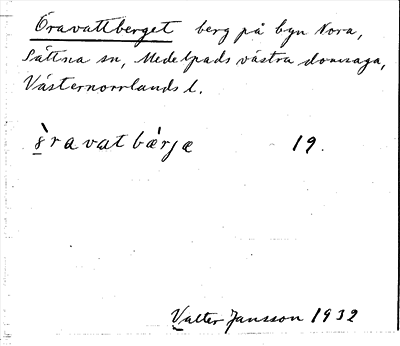 Öravattberget berg på byn Nora,
Sättna sn, Medelpads västra domsaga,
Västernorrlands l.
ravatbärjæ 19.
Valter Jansson 1932